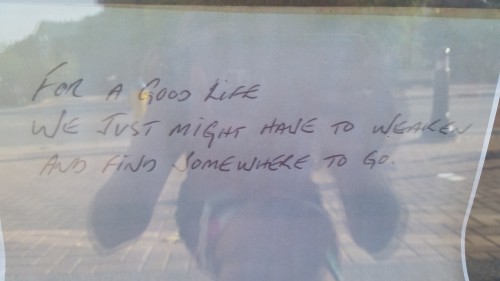 FOR A GOOD LIFE
WE JUST MIGHT HAVE TO WEAKEN
AND FIND SOMEWHERE TO GO.